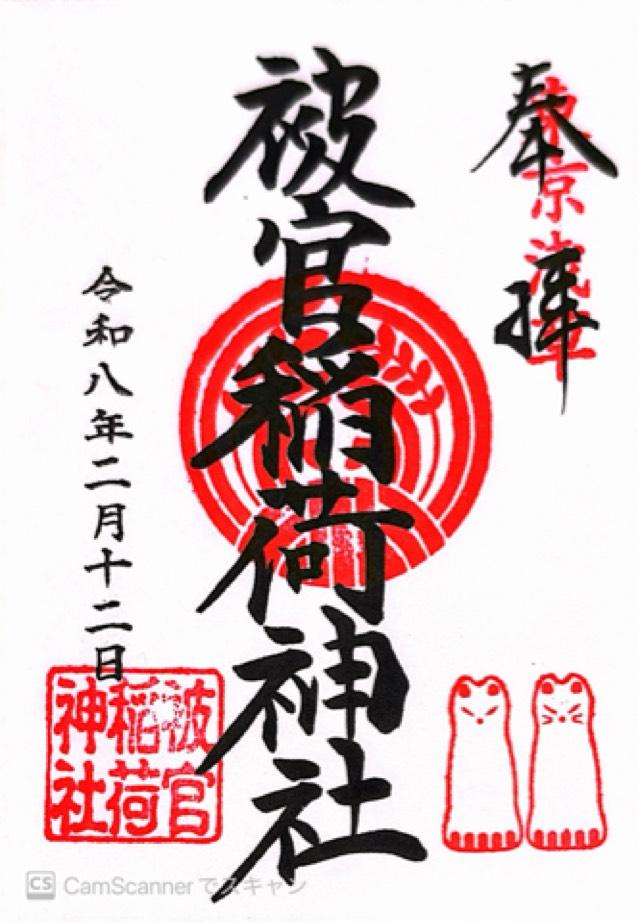 奉拝
東京浅草
被官稲荷神社
令和八年二月十二日
被官
稲荷
神社
CS CamScannerでスキャン